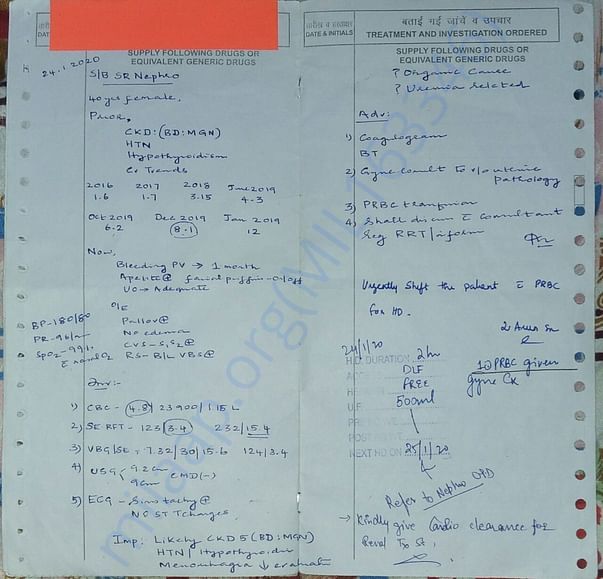 DATE
SUPPLY FOLLOWING DRUGS OR
EQUIVALENT GENERIC DRUGS
24.1.2020
S/B SR Nephro
40 yrs female,
Prior,
CKD: (BD: MGN)
HTN
Hypothyroidism
Cr Trends
2016 2017 2018 June 2019
1.6 1.7 3.15 4.3
Oct 2019 Dec 2019 Jan 2019
6.2 8.1 12
Now,
Bleeding PV → 1 month
facial puffiness - on/off
UO → Adequate
O/E
BP-180/80
Pallor
PR-96/m
No edema
SpO2-99%
CVS - S1S2
RS - B/L VBS
Inv:-
1) CBC - 4.8 / 23900 / 1.15 L
2) SE RFT - 123 / 3.4 232 / 15.4
3) VBG/SE - 7.32/30/15.6 124/3.4
4) USG 9.2cm
9cm CMD (-)
5) ECG - Sinus tachy
NO ST T Changes
Imp: Likely CKD 5 (BD: MGN)
HTN / Hypothyroid
Menorrhagia ↓ evaluation
तारीख व हस्ताक्षर
DATE & INITIALS
बताई गई जांचें व उपचार
TREATMENT AND INVESTIGATION ORDERED
SUPPLY FOLLOWING DRUGS OR
EQUIVALENT GENERIC DRUGS
? Organic Cause
? Uremia related
Adv:
1) Coagulogram
BT
2) Gyne consult to r/o uterine
pathology
3) PRBC transfusion
4) Shall discuss c̄ Consultant
reg RRT / inform
Urgently Shift the patient c̄ PRBC
for HD.
24/1/20
H.D. DURATION 2hr
DLF
FREE
U.F. 500ml
NEXT HD ON 25/1/20
1 PRBC given
Gyne Ck
Refer to Nephro OPD
→ Kindly give Cardio clearance for
Renal Tx
mmaap.org(MIL1633